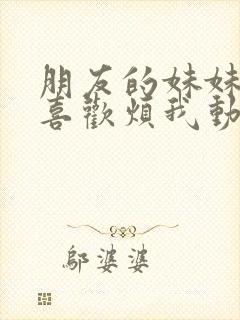 朋友的妹妹
喜歡煩我動
鄔婆婆